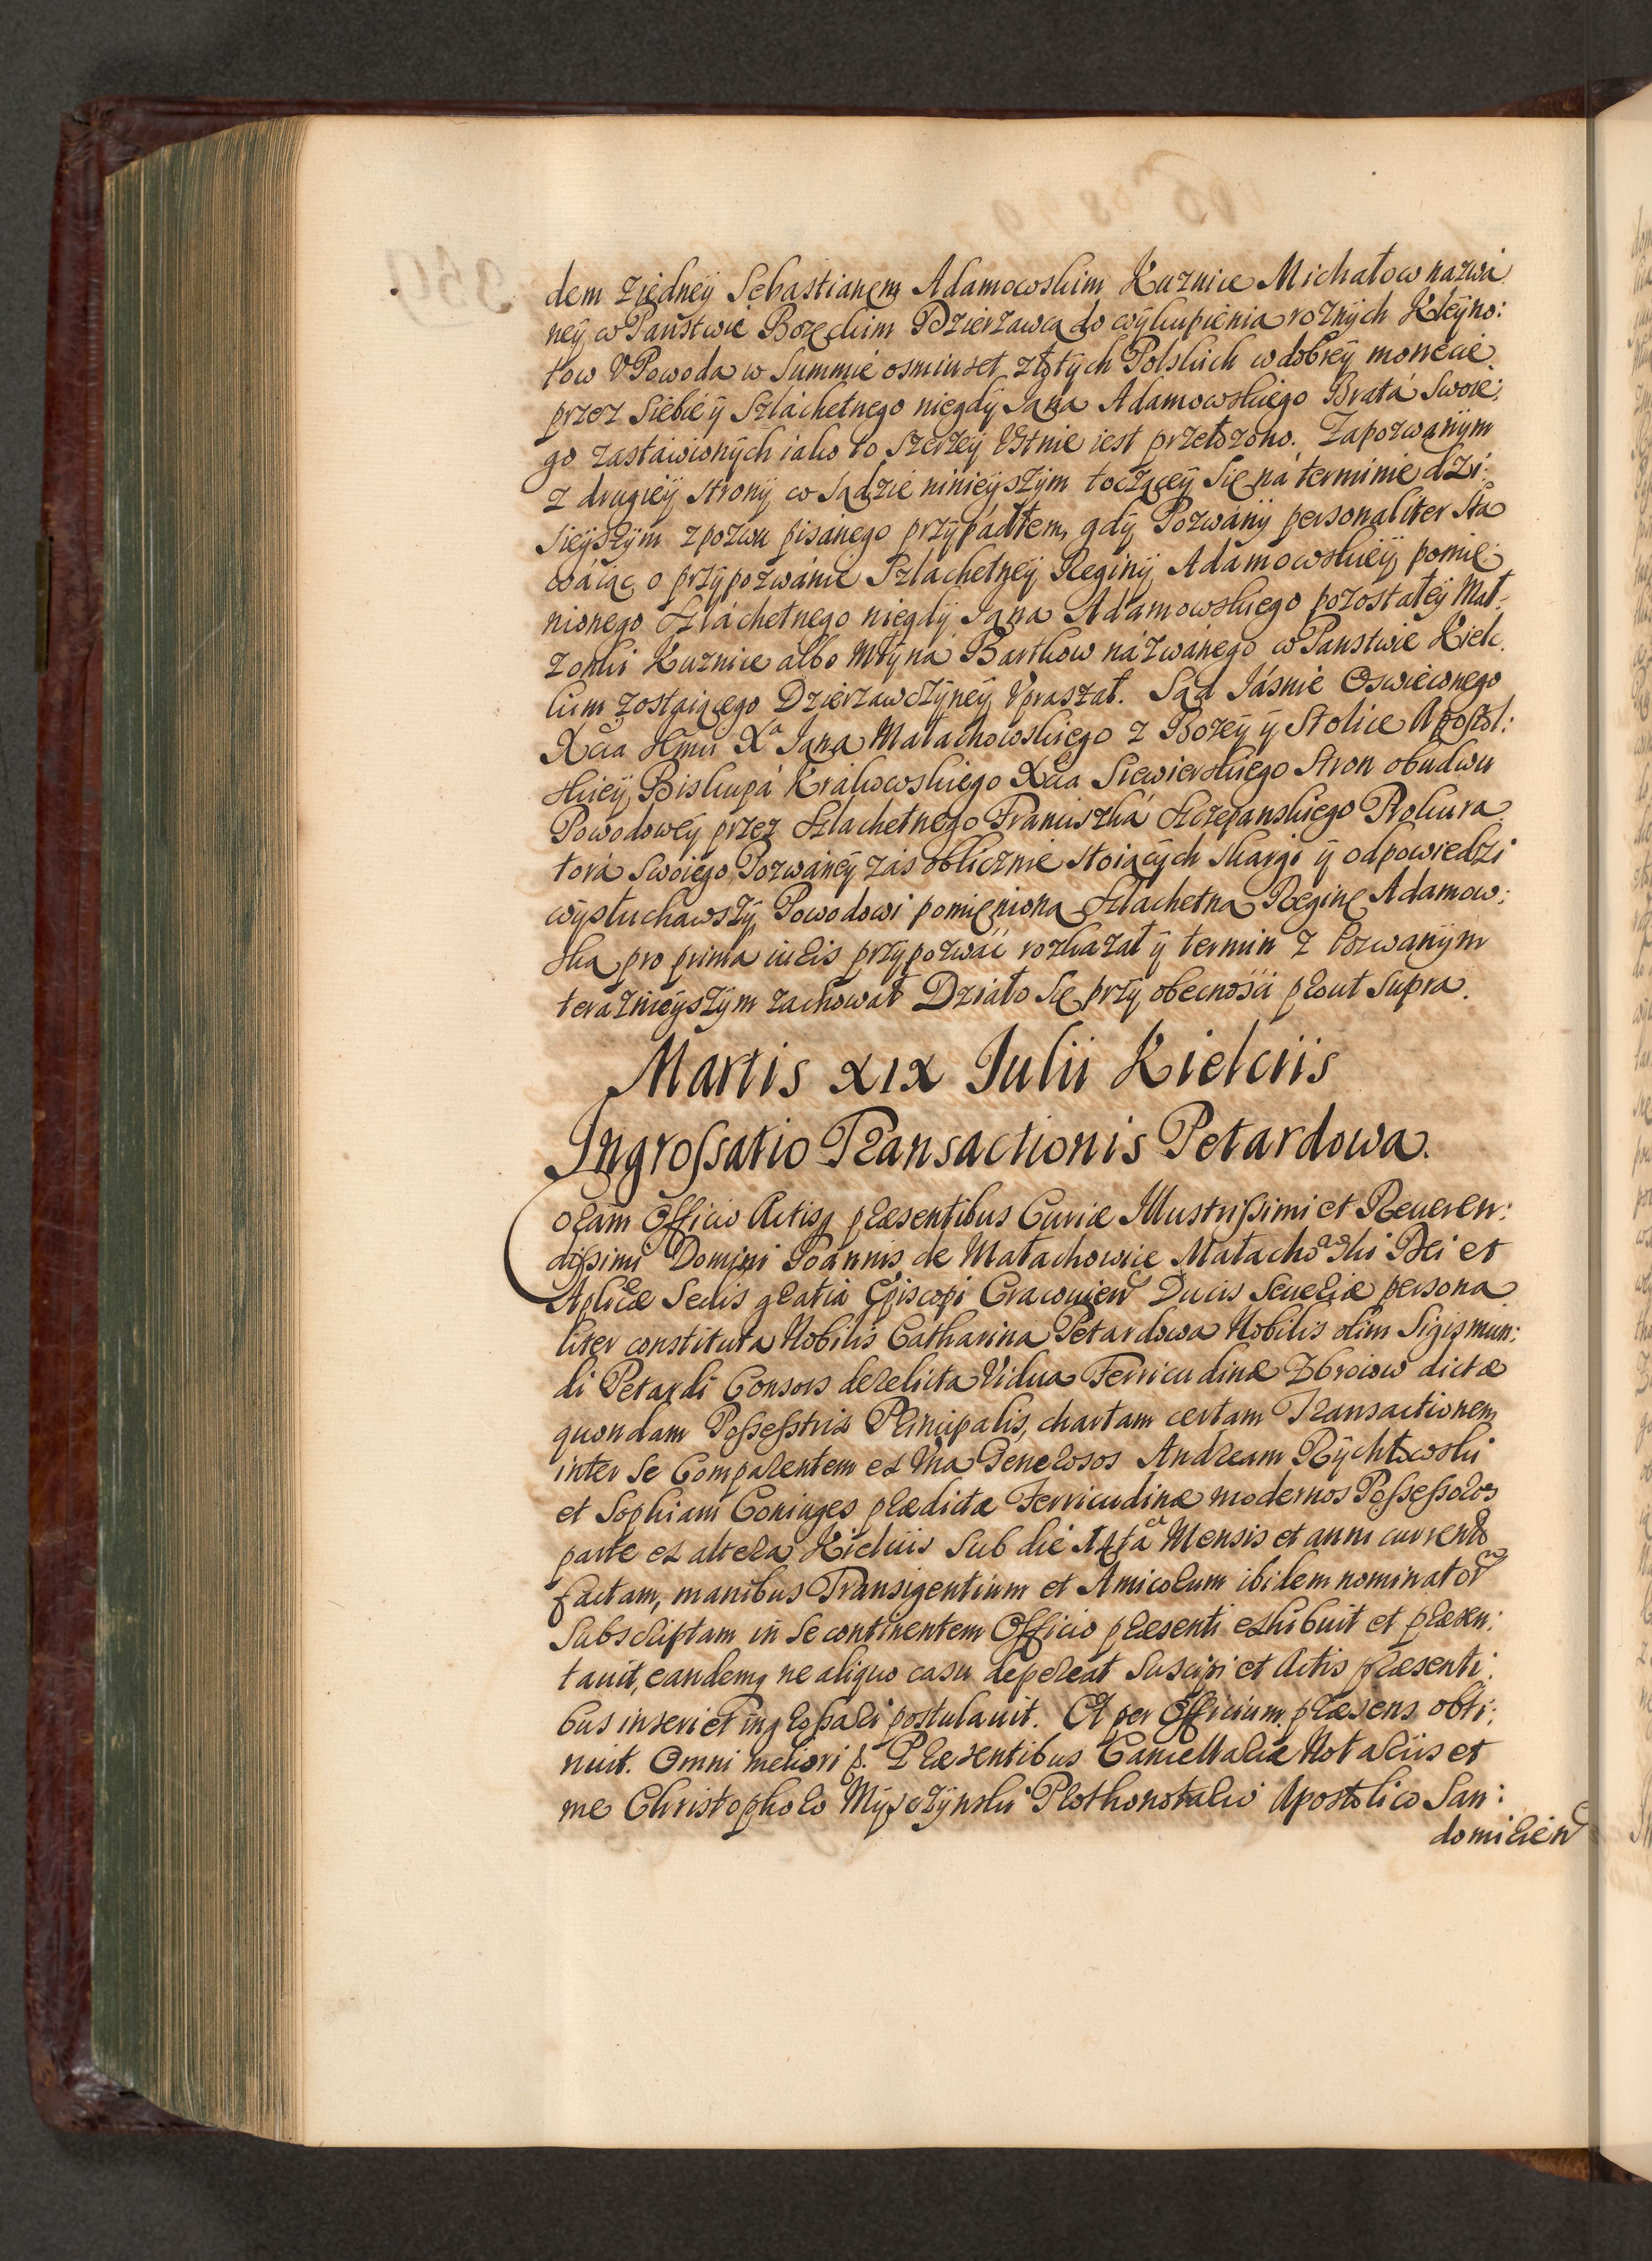 dem z iedney Sebastianem Adamowskim Kuznice Michałow nazwa
ney w Panstwie Bozęckim Dzierzawcą do wykupienia roznych Kleyno:
tow V Powoda w Summie osmiuset złotych Polskich w dobrey monecie
przez Siebie y Szláchetnego niegdy Jana Adamowskiego Bratá Swoie:
go zastáwionych iako to szerzey Istnie iest przełozono. Zapozwanym
z drugiey strony w Sądzie ninieyszym toczącey Się ná terminie dzi:
sieyszym z pozwu pisánego przypádłem, gdy Pozwány personaliter sta
wáiąc o przypozwánie Szláchetney Reginy Adamowskiey pomie:
nionego Szláchetnego niegdy Jana Adámowskiego pozostałey Mał:
zonki Kuznice álbo Młyná Bartkow názwánego w Panstwie Kielc:
kim zostaiącego Dzierzawczyney Vpraszał. Sąd Jásnie Oswieconego
Xcia Jmci Xa Jana Małachowskiego z Bozey y Stolice Apostol:
skiey Biskupá Krákowskiego Xcia Siewierskiego Stron obudwu
Powodowey przez Szlachetnego Franciszká Szczepanskiego Prokura
torá Swoiego Pozwáney zás oblicznie stoiących skargi y odpowiedzi
wysłuchawszy Powodowi pomięnioną Szlachetną Reginę Adamow:
ską pro prima iuris przypozwáć roskazał y termin z Pozwanym
teraznieyszym zachował Działo Się przy obecnosci prout supra.
Martis XIX Julii Kielciis
Ingrossatio Transactionis Petardowa.
Coram Officio Actisq præsentibus Curiæ Illustrissimi et Reueren:
dissimi Domini Joannis de Małachowice Małachowski Dei et
Aplicæ Sedis gratia Episcopi Cracouien Ducis Seueriæ persona
liter constituta Nobilis Catharina Petardowa Nobilis olim Sigismun:
di Petardi Consors derelicta Vidua Ferricudinæ Zbroiow dictæ
quondam Possestrix Principalis, chartam certam Transactionem
inter se Comparentem ex Vna Generosos Andream Rychłowski
et Sophiam Coniuges prædictæ Ferricudinæ modernos Possessores
parte ex altera Kielciis sub die Mensis et anni currenti
factam, manibus Transigentium et Amicorum ibidem nominator
Subscriptam in se continentem Officio præsenti exhibuit et præsen:
tauit, eandemq ne aliquo casu depereat suscipi et Actis præsenti:
bus inseri et ingrossari postulauit. Et per Officium præsens obti:
nuit. Omni meliori p. Præsentibus Cancellariæ Notariis et
me Christophoro Myszczynski Prothonotario Apostolico San:
domirien